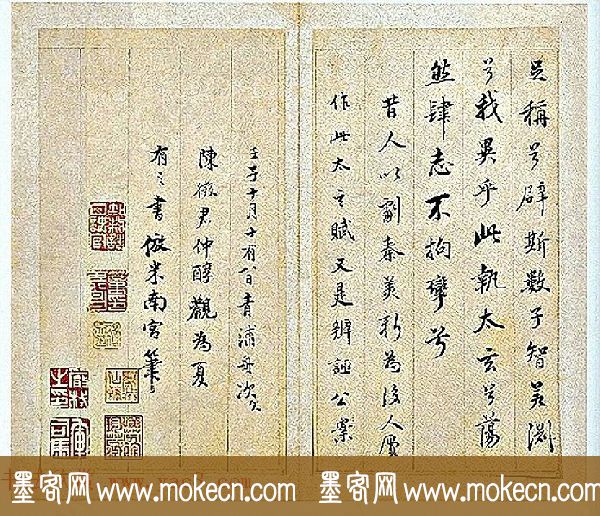 足稱兮辟斯數子智若淵
兮我異乎此執太玄兮蕩
然肆志不拘攣兮
昔人以劇秦美新為後人贋
作此太玄賦又是辨誣公案
壬子十月十有八日青浦舟次
陳徵君仲醇觀為夏
有之書倣米南宮筆
墨客网 www.mokecn.com 墨客网 www.mokecn.com